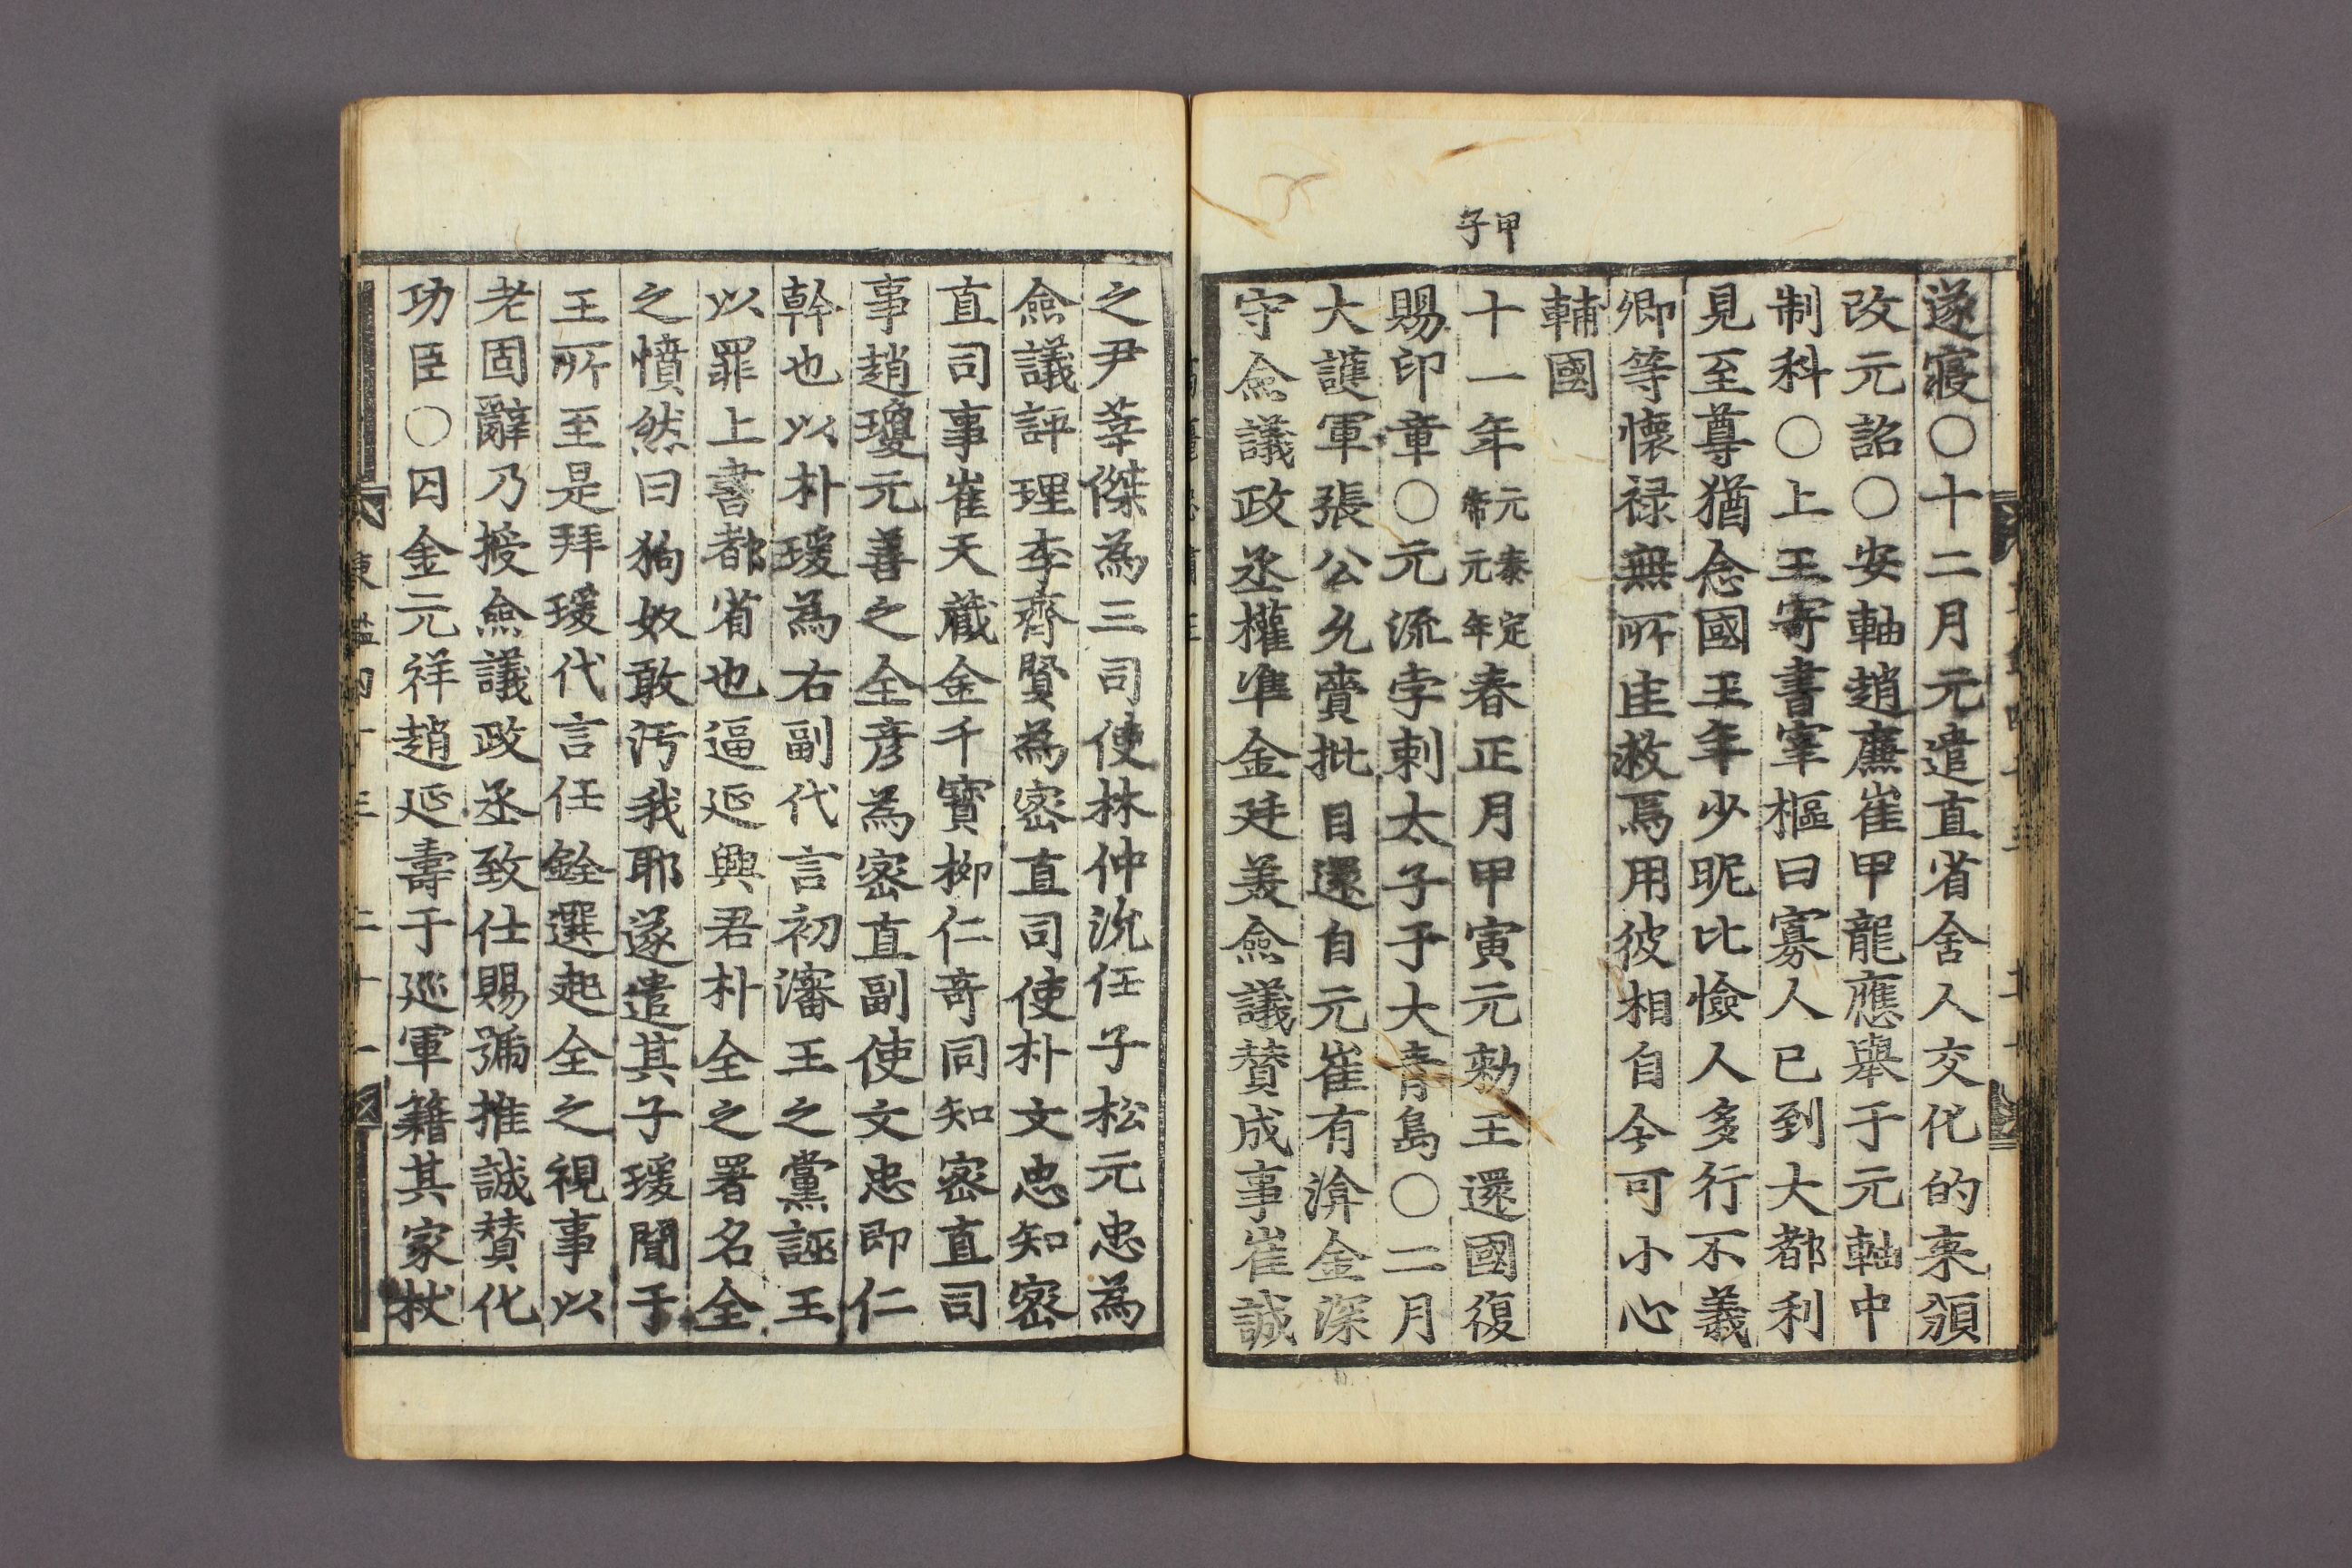 遂寢○十二月元遣直省舍人交化的来頒
改元詔○安軸趙廉崔甲龍應舉于元軸中
制科○上王寄書宰樞曰寡人已到大都利
見至尊猶念國王年少昵比憸人多行不義
卿等懷禄無所匡救焉用彼相自今可小心
輔國
甲子
十一年元泰定帝元年春正月甲寅元勑王還國復
賜印章○元流孛剌太子于大青島○二月
大護軍張公允賫批目還自元崔有渰金深
守僉議政丞權準金廷美僉議贊成事崔誠
之尹莘傑為三司使林仲沇任子松元忠為
僉議評理李齊賢為密直司使朴文忠知密
直司事崔天藏金千寶柳仁奇同知密直司
事趙瓊元善之全彦為密直副使文忠即仁
幹也以朴瑗為右副代言初瀋王之黨誣王
以罪上書都省也逼延興君朴全之署名全
之憤然曰狗奴敢汚我耶遂遣其子瑗聞于
王所至是拜瑗代言任銓選起全之視事以
老固辭乃授僉議政丞致仕賜號推誠贊化
功臣○囚金元祥趙延壽于巡軍籍其家杖